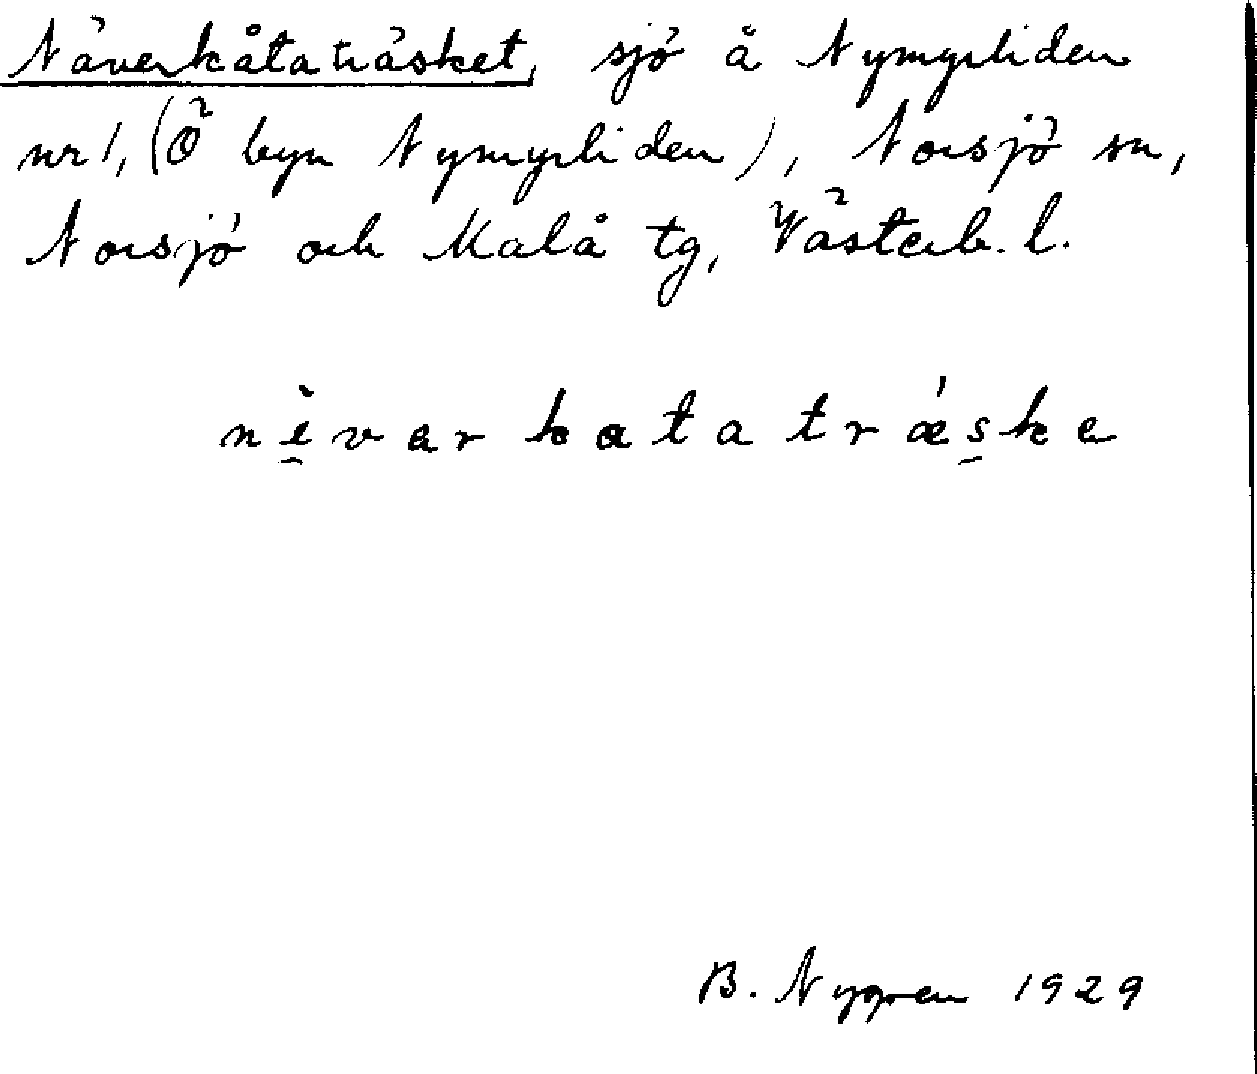 Näverkåtaträsket, sjö å Nymyrliden
nr 1, (Ö byn Nymyrliden), Norsjö sn,
Norsjö och Malå tg, Västerb. l.
nè̱varkatatrǽs̱ke
B. Nygren 1929